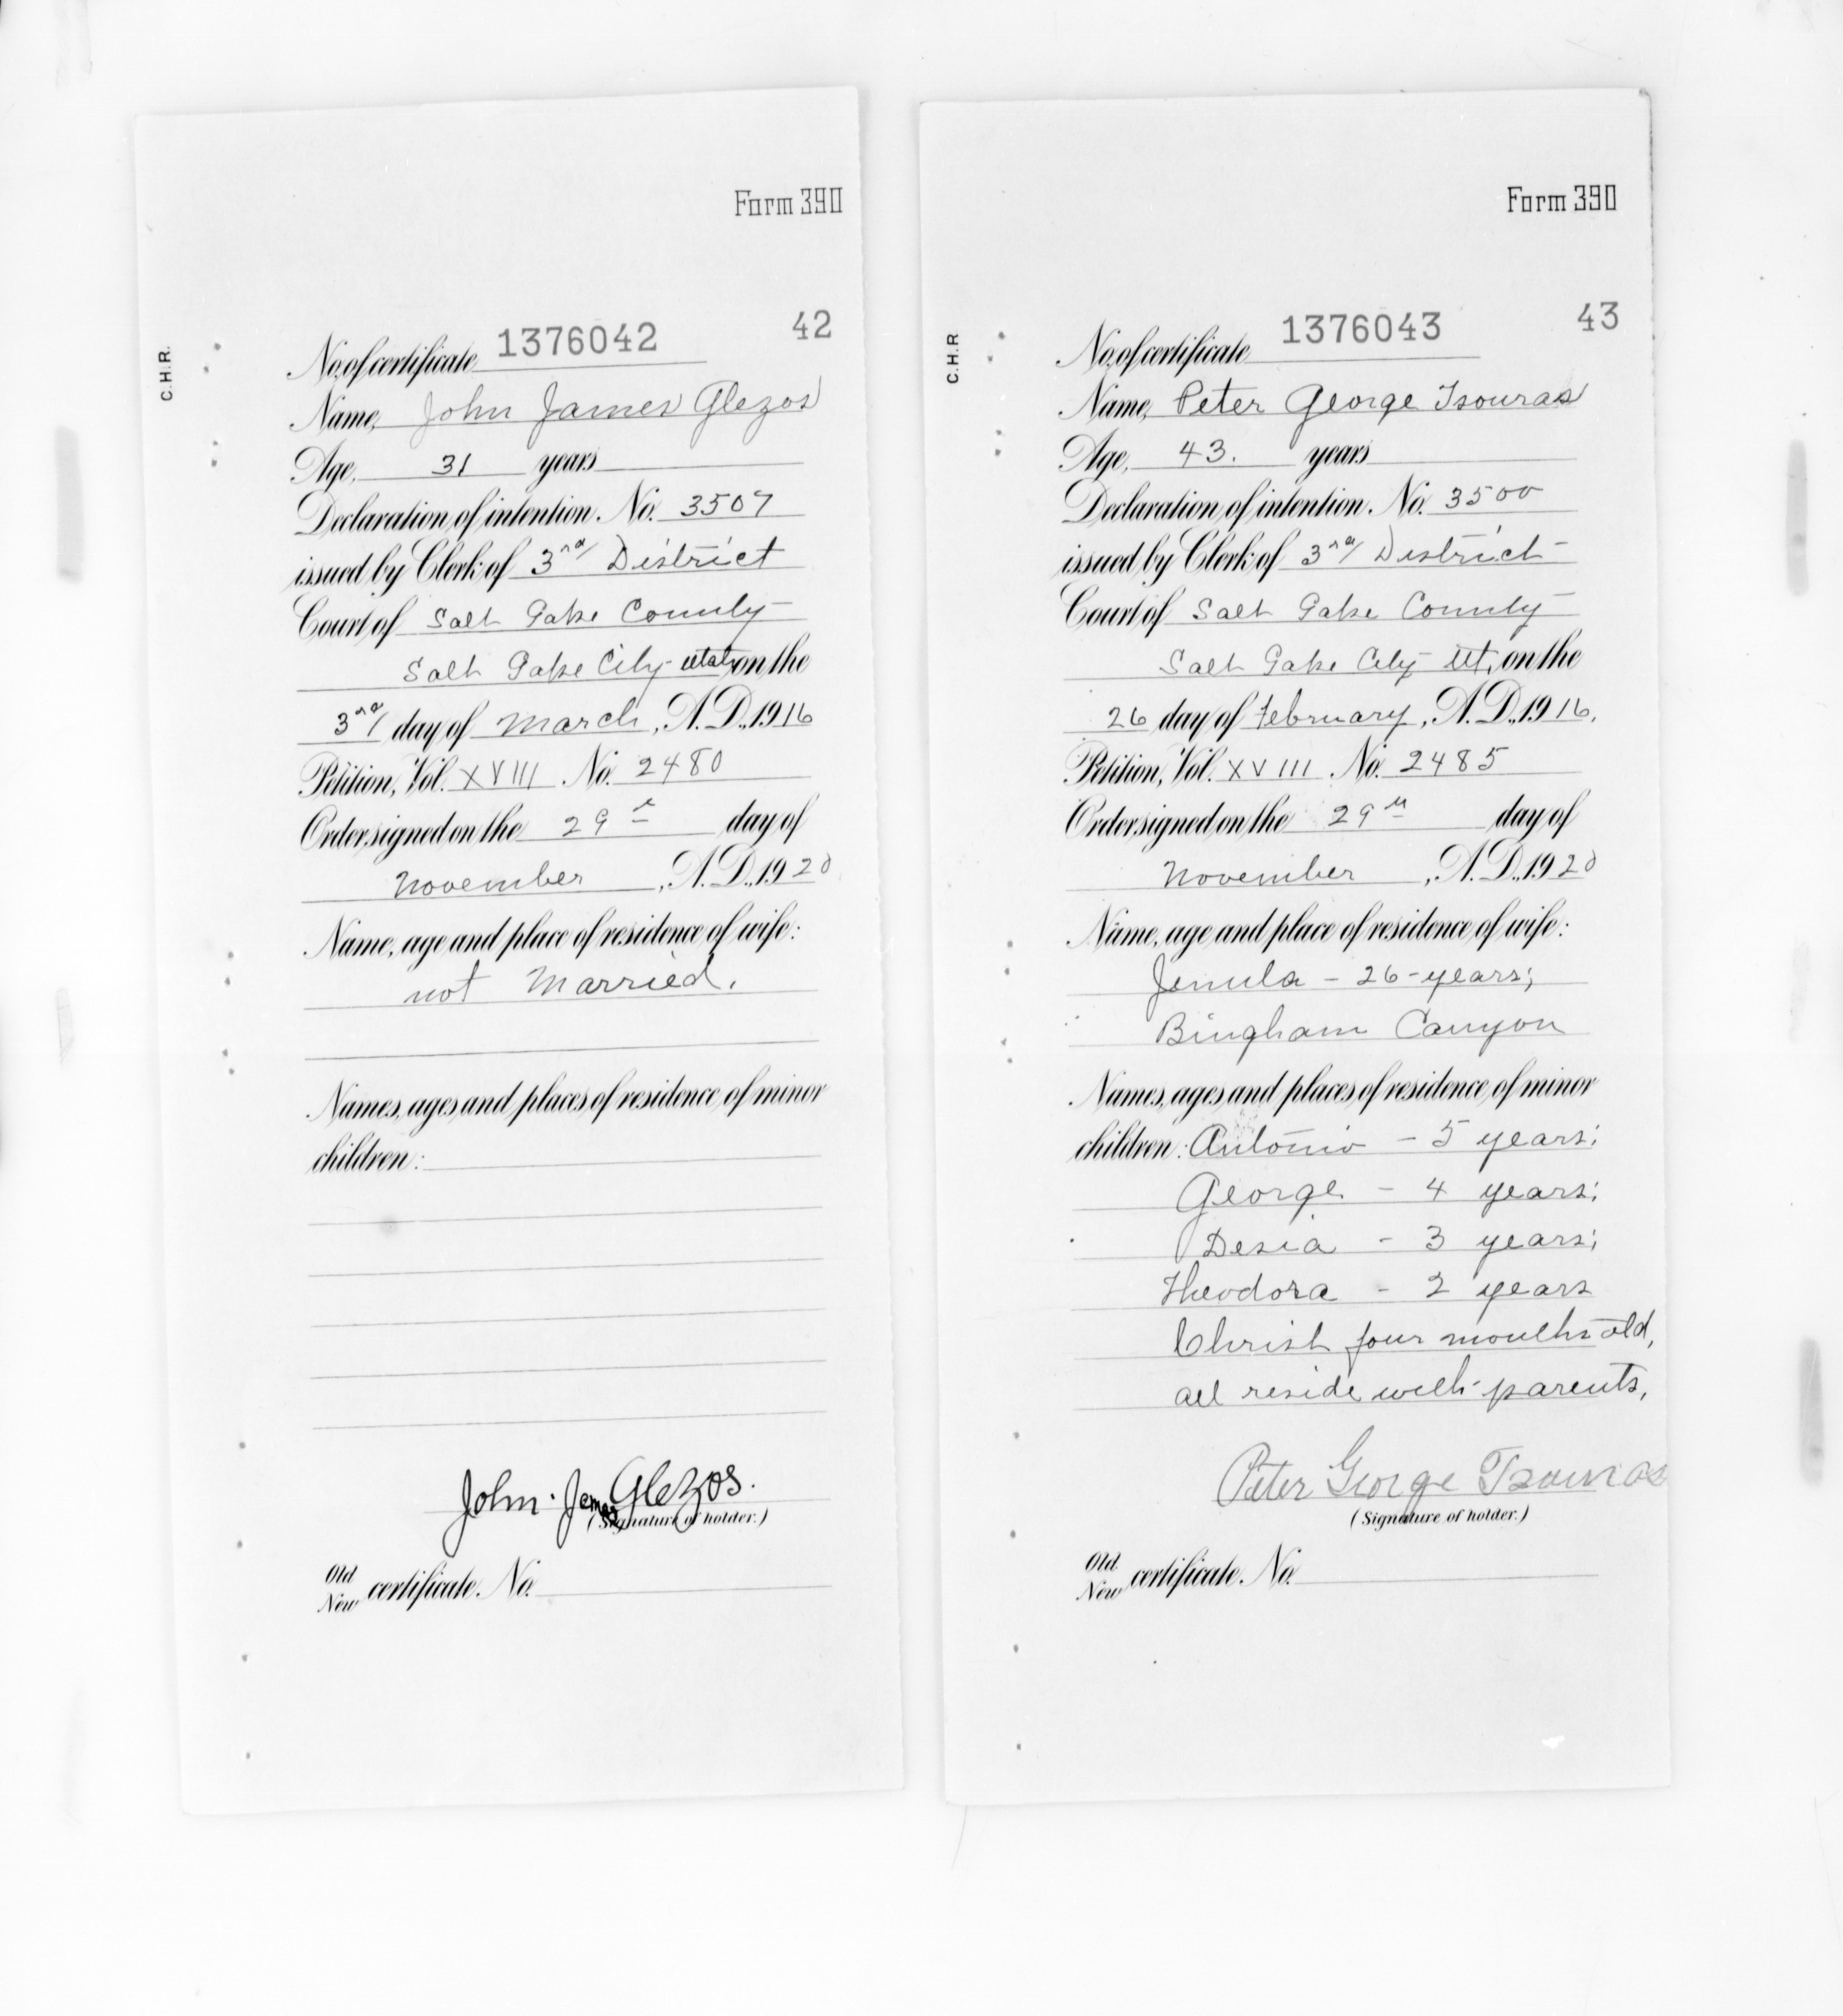 Form 390
C.H.R.
42
No. of certificate 1376042
Name, John James Glezos
Age, 31 years
Declaration of intention. No. 3507
issued by Clerk of 3rd District
Court of Salt Lake County
Salt Lake City Utah on the
3rd day of March, A.D. 1916
Petition, Vol. XVIII No. 2480
Order signed on the 29th day of
November, A.D. 1920
Name, age and place of residence of wife:
not Married.
Names, ages and places of residence of minor
children:
John. James Glezos.
(Signature of holder.)
Old
New certificate. No.
Form 390
C.H.R
43
No. of certificate 1376043
Name, Peter George Tsouras
Age, 43. years
Declaration of intention. No. 3500
issued by Clerk of 3rd District
Court of Salt Lake County
Salt Lake City Ut, on the
26 day of February, A.D. 1916.
Petition, Vol. XVIII No. 2485
Order signed on the 29th day of
November, A.D. 1920
Name, age and place of residence of wife:
Jenula - 26-years;
Bingham Canyon
Names, ages and places of residence of minor
children: Antonio - 5 years;
George - 4 years;
Desia - 3 years;
Theodora - 2 years
Christ four months old,
all reside with parents,
Peter George Tsouras
(Signature of holder.)
Old
New certificate. No.